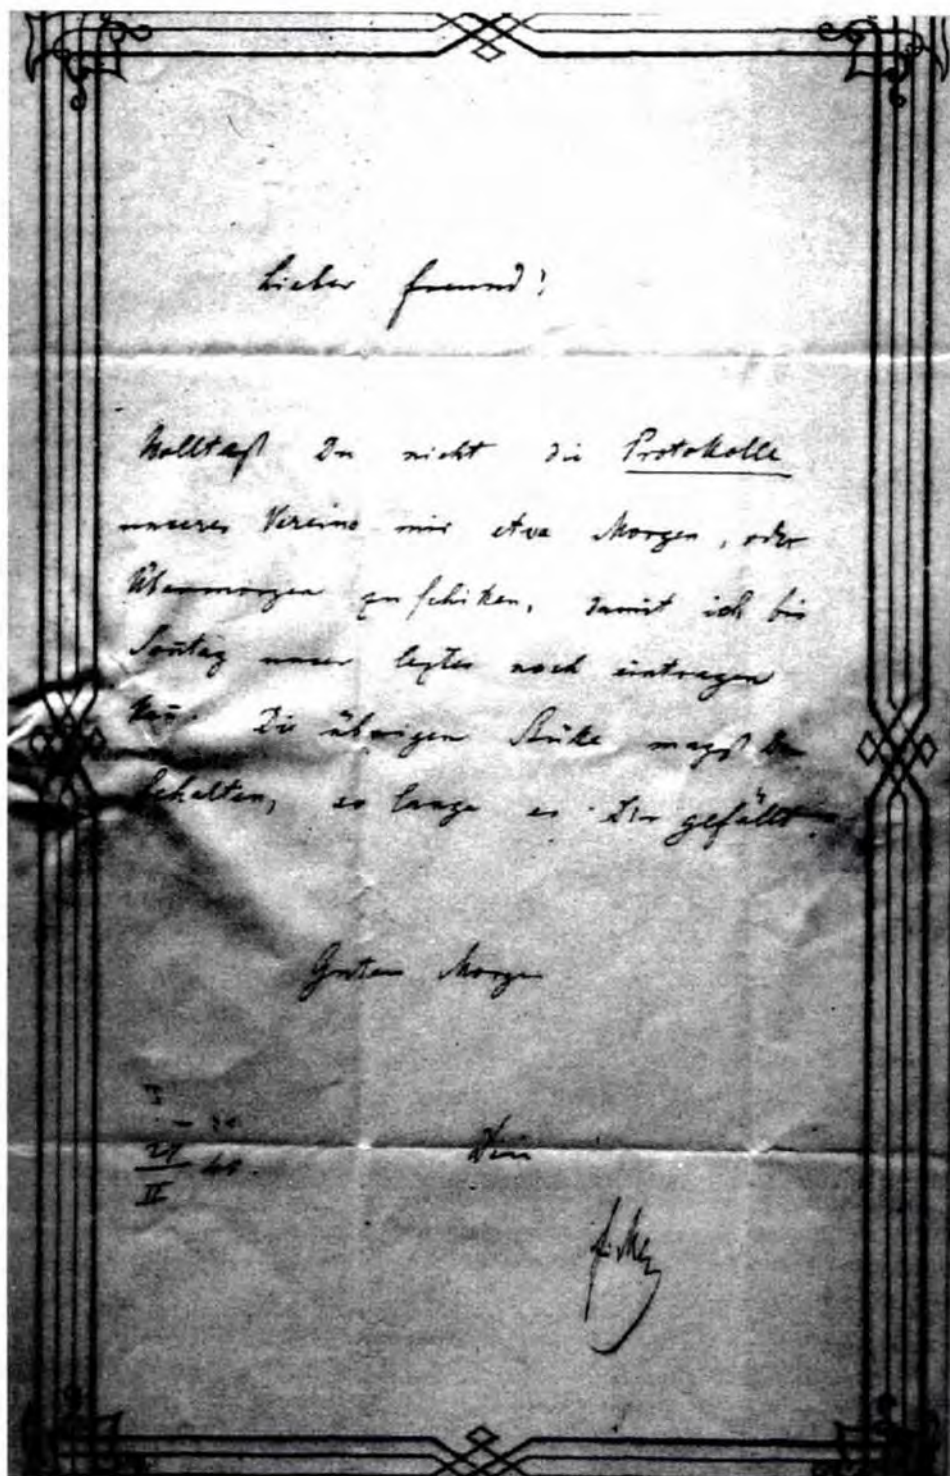 Lieber Freund!
Wolltest Du nicht die Protokolle
unseres Vereins mir etwa Morgen, oder
Übermorgen zu schiken, damit ich bis
Soñtag unser leztes noch eintragen
kañ. Die übrigen Stüke magst Du
behalten, so lange es Dir gefällt.
Guten Morgen
Dein
II